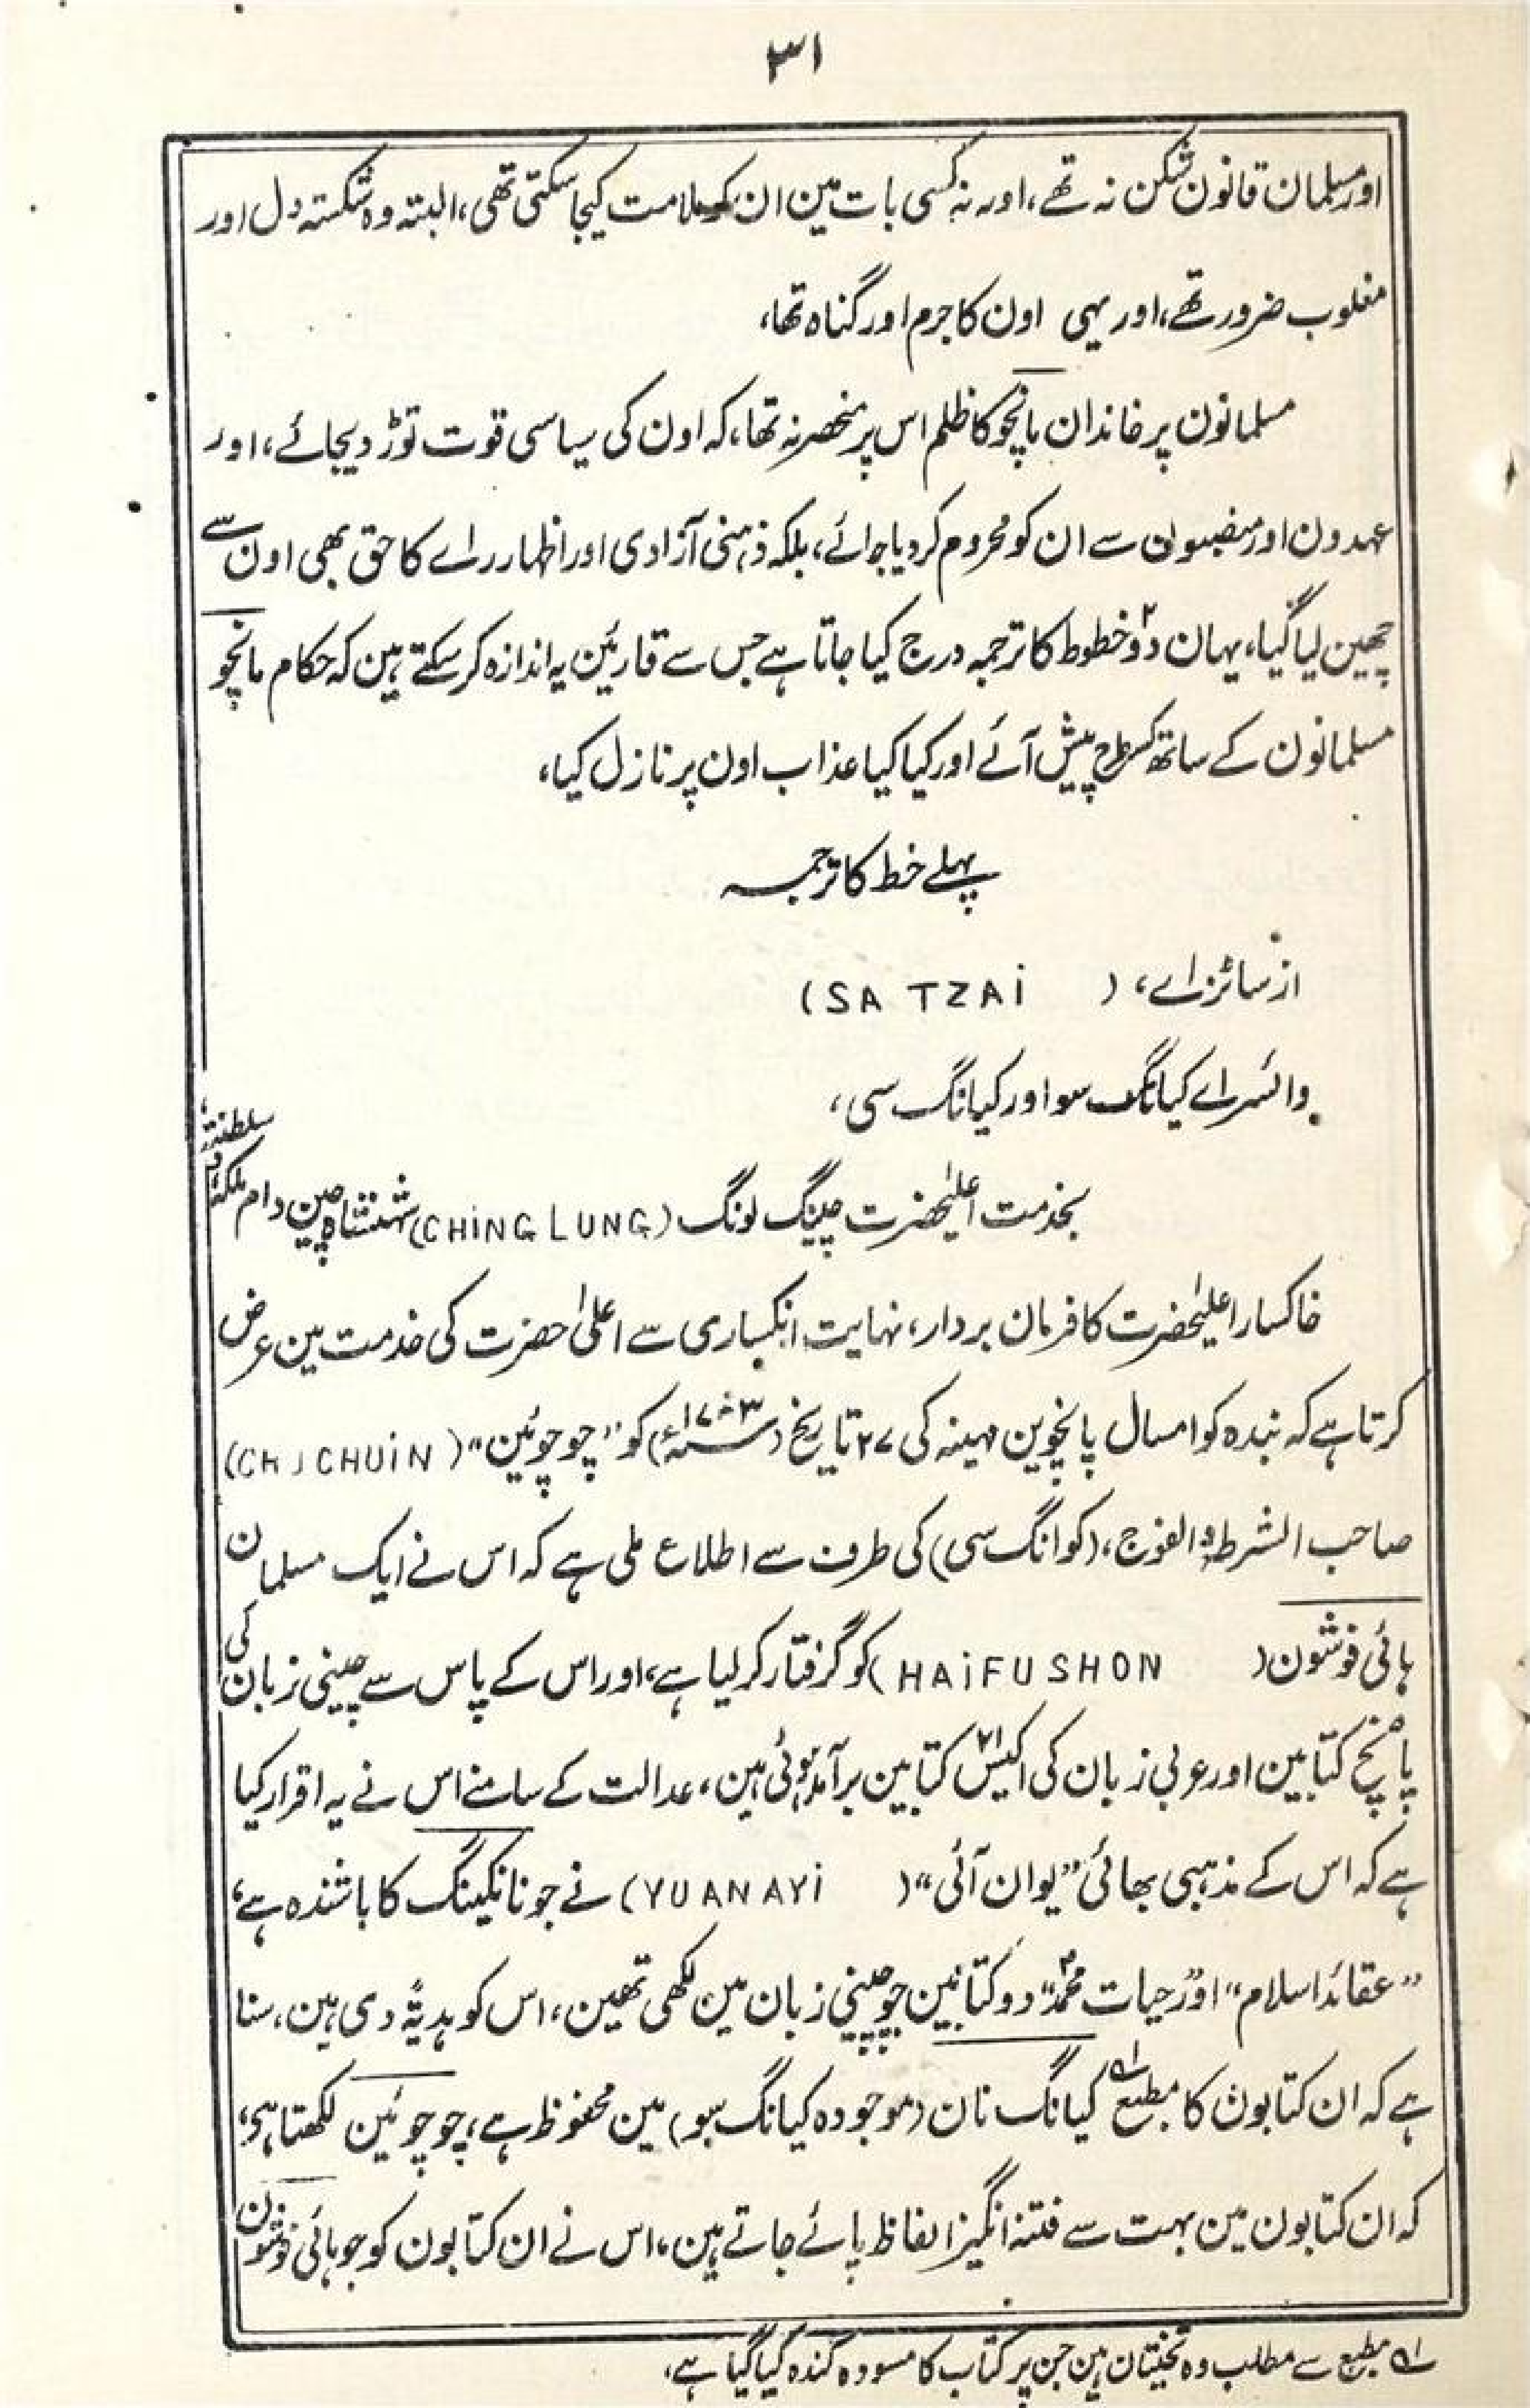 ۳۱
اور مسلمان قانون شکن نہ تھے، اور نہ کسی بات مین ان کو ملامت کیجا سکتی تھی، البتہ وہ شکستہ دل اور
مغلوب ضرور تھے، اور یہی اون کا جرم اور گناہ تھا،
مسلمانون پر خاندان مانچو کا ظلم اس پر منحصر نہ تھا، کہ اون کی سیاسی قوت توڑ دیجائے، اور
عہدون اور منصبون سے ان کو محروم کر دیا جوائے، بلکہ ذہنی آزادی اور اظہار راے کا حق بھی اون سے
چھین لیا گیا، یہان دو۲ خطوط کا ترجمہ درج کیا جاتا ہے جس سے قارئین یہ اندازہ کر سکتے ہین کہ حکام مانچو
مسلمانون کے ساتھ کسطرح پیش آئے اور کیا کیا عذاب اون پر نازل کیا،
پہلے خط کا ترجمہ
از سائزاے، (SA TZAi)
وائسراے کیانگ سو اور کیانگ سی،
بخدمت اعلیٰحضرت چینگ لونگ (CHiNG LUNG) شہنشاہ چین دام ملکہٗ و سلطنتہٗ
خاکسار اعلیٰحضرت کا فرمان بردار، نہایت انکساری سے اعلیٰ حضرت کی خدمت مین عرض
کرتا ہے کہ بندہ کو امسال پانچوین مہینہ کی ۲۷ تاریخ (۱۷۸۳ء) کو "چوچوئین" (CHJCHUiN)
صاحب الشرطہ و الفوج، (کوانگ سی) کی طرف سے اطلاع ملی ہے کہ اس نے ایک مسلمان
ہائی فوشون (HAiFUSHON) کو گرفتار کر لیا ہے، اور اس کے پاس سے چینی زبان کی
پانچ۵ کتابین اور عربی زبان کی اکیس۲۱ کتابین برآمد ہوئی ہین، عدالت کے سامنے اس نے یہ اقرار کیا
ہے کہ اس کے مذہبی بھائی "یوان آئی" (YUANAYi) نے جو نانکینگ کا باشندہ ہے،
"عقائد اسلام" اور "حیات محمدؐ" دو کتابین جو چینی زبان مین لکھی تھین، اس کو ہدیۃً دی ہین، سنا
ہے کہ ان کتابون کا مطبع لہ کیانگ نان (موجودہ کیانگ سو) مین محفوظ ہے، چوچوئین لکھتا ہی،
کہ ان کتابون مین بہت سے فتنہ انگیز الفاظ پائے جاتے ہین، اس نے ان کتابون کو جو ہائی فوشون
لہ مطبع سے مطلب وہ تختیان ہین جن پر کتاب کا مسودہ کندہ کیا گیا ہے،